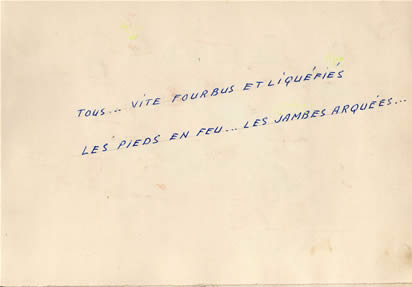 TOUS... VITE FOURBUS ET LIQUÉFIÉS
LES PIEDS EN FEU... LES JAMBES ARQUÉES...